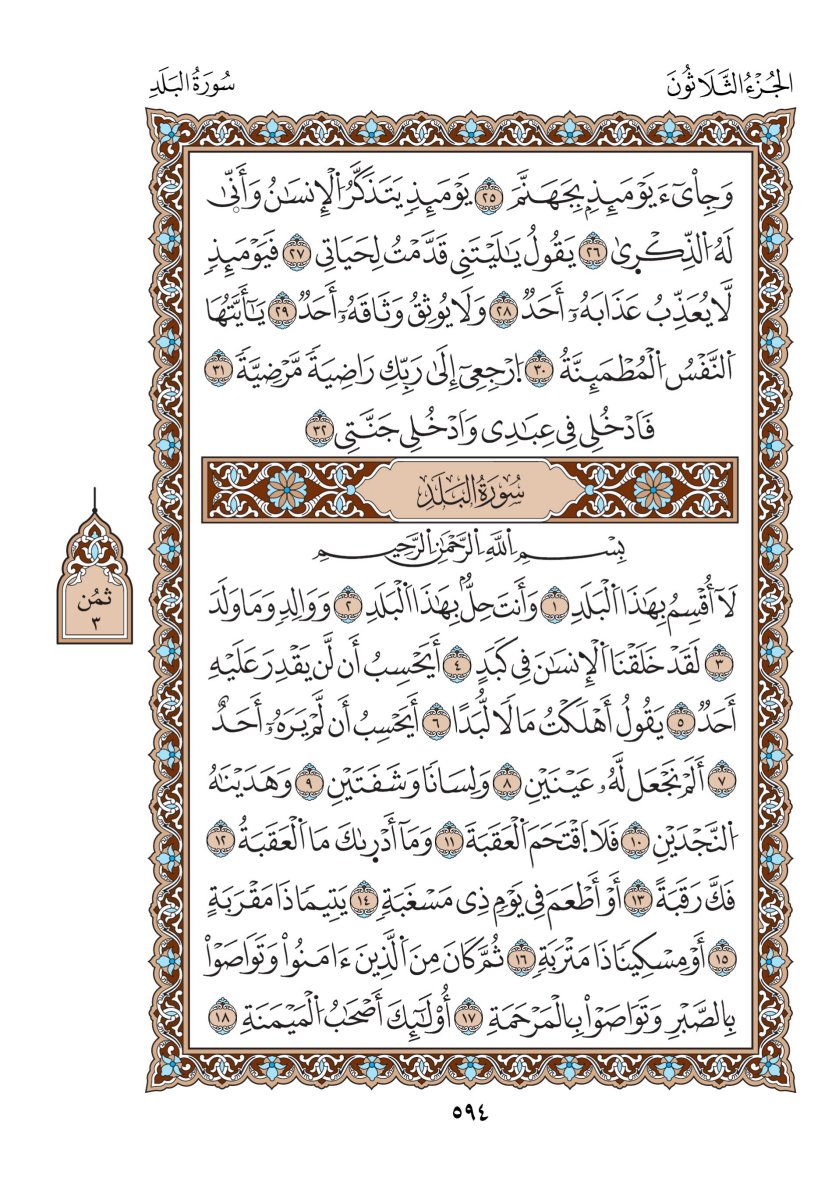 الجُزْءُ الثَّلَاثُونَ
سُورَةُ البَلَدِ
وَجِاْيٓءَ يَوْمَئِذِۭ بِجَهَنَّمَ ٢٥ يَوْمَئِذٖ يَتَذَكَّرُ اُ۬لْإِنسَٰنُ وَأَنّۭىٰ
لَهُ اُ۬لذِّكْر۪ىٰ ٢٦ يَقُولُ يَٰلَيْتَنِى قَدَّمْتُ لِحَيَاتِى ٢٧ فَيَوْمَئِذٖ
لَّا يُعَذِّبُ عَذَابَهُۥٓ أَحَدٞ ٢٨ وَلَا يُوثِقُ وَثَاقَهُۥٓ أَحَدٞ ٢٩ يَٰٓأَيَّتُهَا
اَ۬لنَّفْسُ اُ۬لْمُطْمَئِنَّةُ ٣٠ اُ۪رْجِعِىٓ إِلَىٰ رَبِّكِ رَاضِيَةٗ مَّرْضِيَّةٗ ٣١
فَادْخُلِى فِى عِبَٰدِى وَادْخُلِى جَنَّتِى ٣٢
سُورَةُ البَلَدِ
بِسْمِ اِ۬للَّهِ اِ۬لرَّحْمَٰنِ اِ۬لرَّحِيمِ
لَآ أُقْسِمُ بِهَٰذَا اَ۬لْبَلَدِ ١ وَأَنتَ حِلُّۢ بِهَٰذَا اَ۬لْبَلَدِ ٢ وَوَالِدٖ وَمَا وَلَدَ
٣ لَقَدْ خَلَقْنَا اَ۬لْإِنسَٰنَ فِى كَبَدٍ ٤ أَيَحْسِبُ أَن لَّن يَقْدِرَ عَلَيْهِ
أَحَدٞ ٥ يَقُولُ أَهْلَكْتُ مَالٗا لُّبَدًا ٦ أَيَحْسِبُ أَن لَّمْ يَرَهُۥٓ أَحَدٌ
٧ أَلَمْ نَجْعَل لَّهُۥ عَيْنَيْنِ ٨ وَلِسَانٗا وَشَفَتَيْنِ ٩ وَهَدَيْنَٰهُ
اُ۬لنَّجْدَيْنِ ١٠ فَلَا اَ۪قْتَحَمَ اَ۬لْعَقَبَةَ ١١ وَمَآ أَدْر۪ىٰكَ مَا اَ۬لْعَقَبَةُ ١٢
فَكَّ رَقَبَةً ١٣ أَوْ أَطْعَمَ فِى يَوْمٖ ذِى مَسْغَبَةٖ ١٤ يَتِيمٗا ذَا مَقْرَبَةٍ
١٥ أَوْ مِسْكِينٗا ذَا مَتْرَبَةٖ ١٦ ثُمَّ كَانَ مِنَ اَ۬لَّذِينَ ءَامَنُواْ وَتَوَاصَوْاْ
بِالصَّبْرِ وَتَوَاصَوْاْ بِالْمَرْحَمَةِ ١٧ أُوْلَٰٓئِكَ أَصْحَٰبُ اُ۬لْمَيْمَنَةِ ١٨
ثمُن
٣
٥٩٤